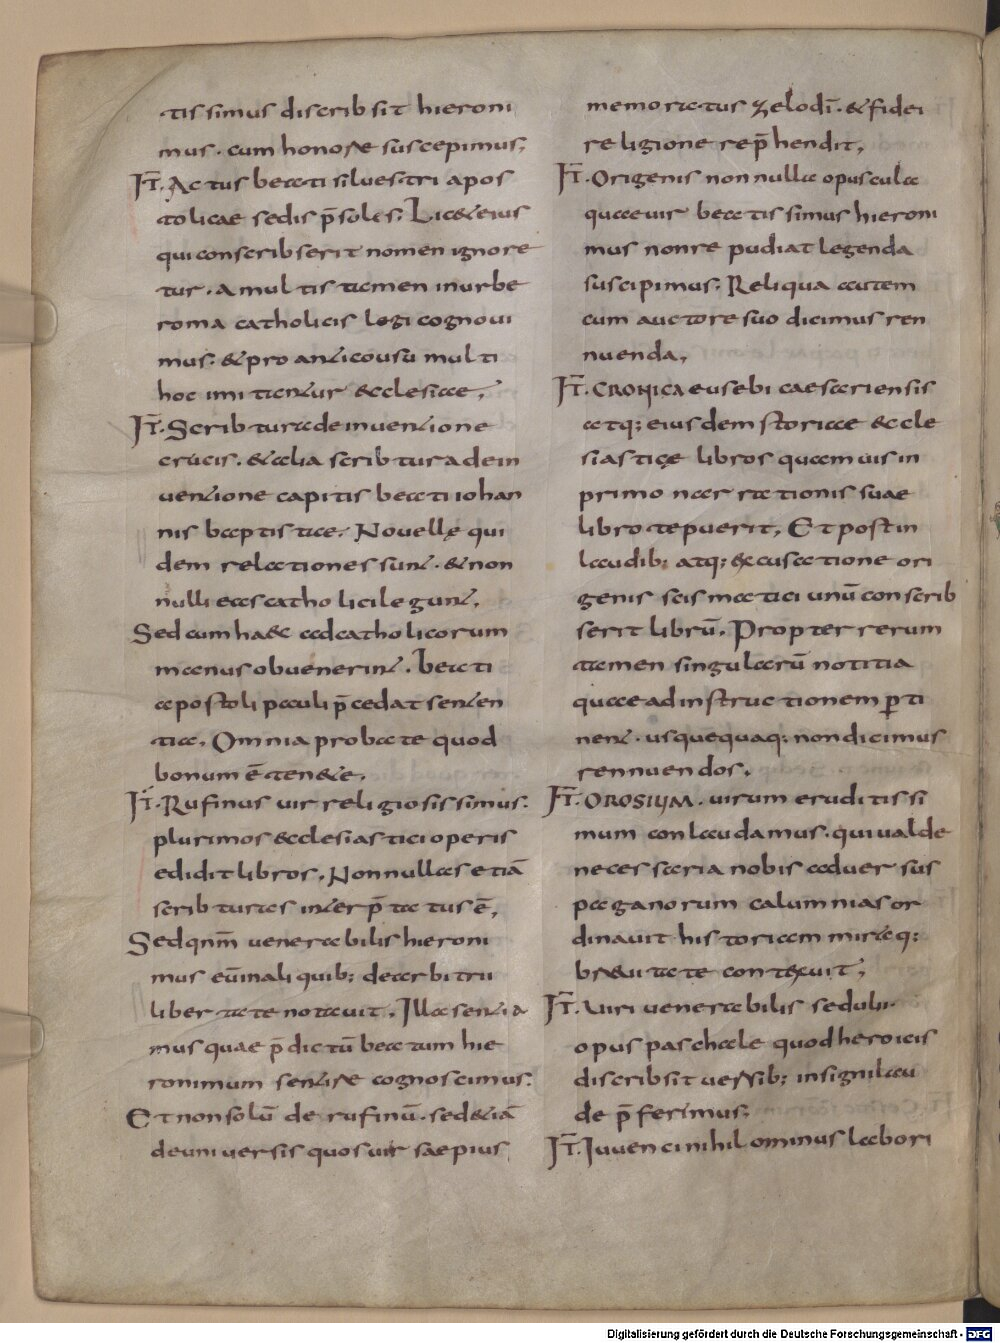 tissimus discribsit hieroni
mus. cum honore suscepimus;
IT̄. Actus beati siluestri apos
tolicae sedis p̄soles; Licet eius
qui conscribserit nomen ignore
tur. a multis tamen in urbe
roma catholicis legi cognoui
mus. & pro anticousu multi
hoc imitantur ecclesiae;
IT̄. Scribtura de inuentione
crucis. & alia scribtura de in
uentione capitis beati iohan
nis baptistae. Nouellę qui
dem relationes sunt. & non
nulli eas catholici legunt.
Sed cum haec ad catholicorum
manus obuenerint. beati
apostoli pauli p̄cedat senten
tia. Omnia probate quod
bonum ē tenete.
IT̄. Rufinus uir religiosissimus.
plurimos ecclesiastici operis
edidit libros. Nonnullas etiā
scribturas interp̄tatus ē.
Sed qnm̄ uenerabilis hieroni
mus eūinaliquib; de arbitrii
libertate notauit. Illa sentia
mus quae p̄dictū beatum hie
ronimum sentire cognoscimus.
Et non solū de rufinū. sed &iā
de uniuersis quos uir saepius
memoratus zelo dī. & fidei
religione rep̄hendit.
IT̄. Origenis nonnulla opuscula
quae uir beatissimus hieroni
mus non repudiat legenda
suscipimus; Reliqua autem
cum auctore suo dicimus ren
nuenda.
IT̄. CRONICA eusebi caesariensis
atq; eiusdem storiae eccle
siasticę libros quamuis in
primo narrationis suae
libro tepuerit. Et post in
laudib; atq; excusatione ori
genis scismatici unū conscrib
serit librū. Propter rerum
tamen singularū notitia
quae ad instructionem ꝑti
nent. usquequaq; non dicimus
rennuendos.
IT̄. OROSIUM. uirum eruditissi
mum conlaudamus. qui ualde
necessaria nobis aduersus
paganorum calumnias or
dinauit historiam miraq;
breuitate contexuit;
IT̄. Uiri uenerabilis seduli.
opus paschale quod heroicis
discribsit uersib; insigni lau
de p̄ferimus;
IT̄. Juuenci nihilominus labori
Digitalisierung gefördert durch die Deutsche Forschungsgemeinschaft - DFG